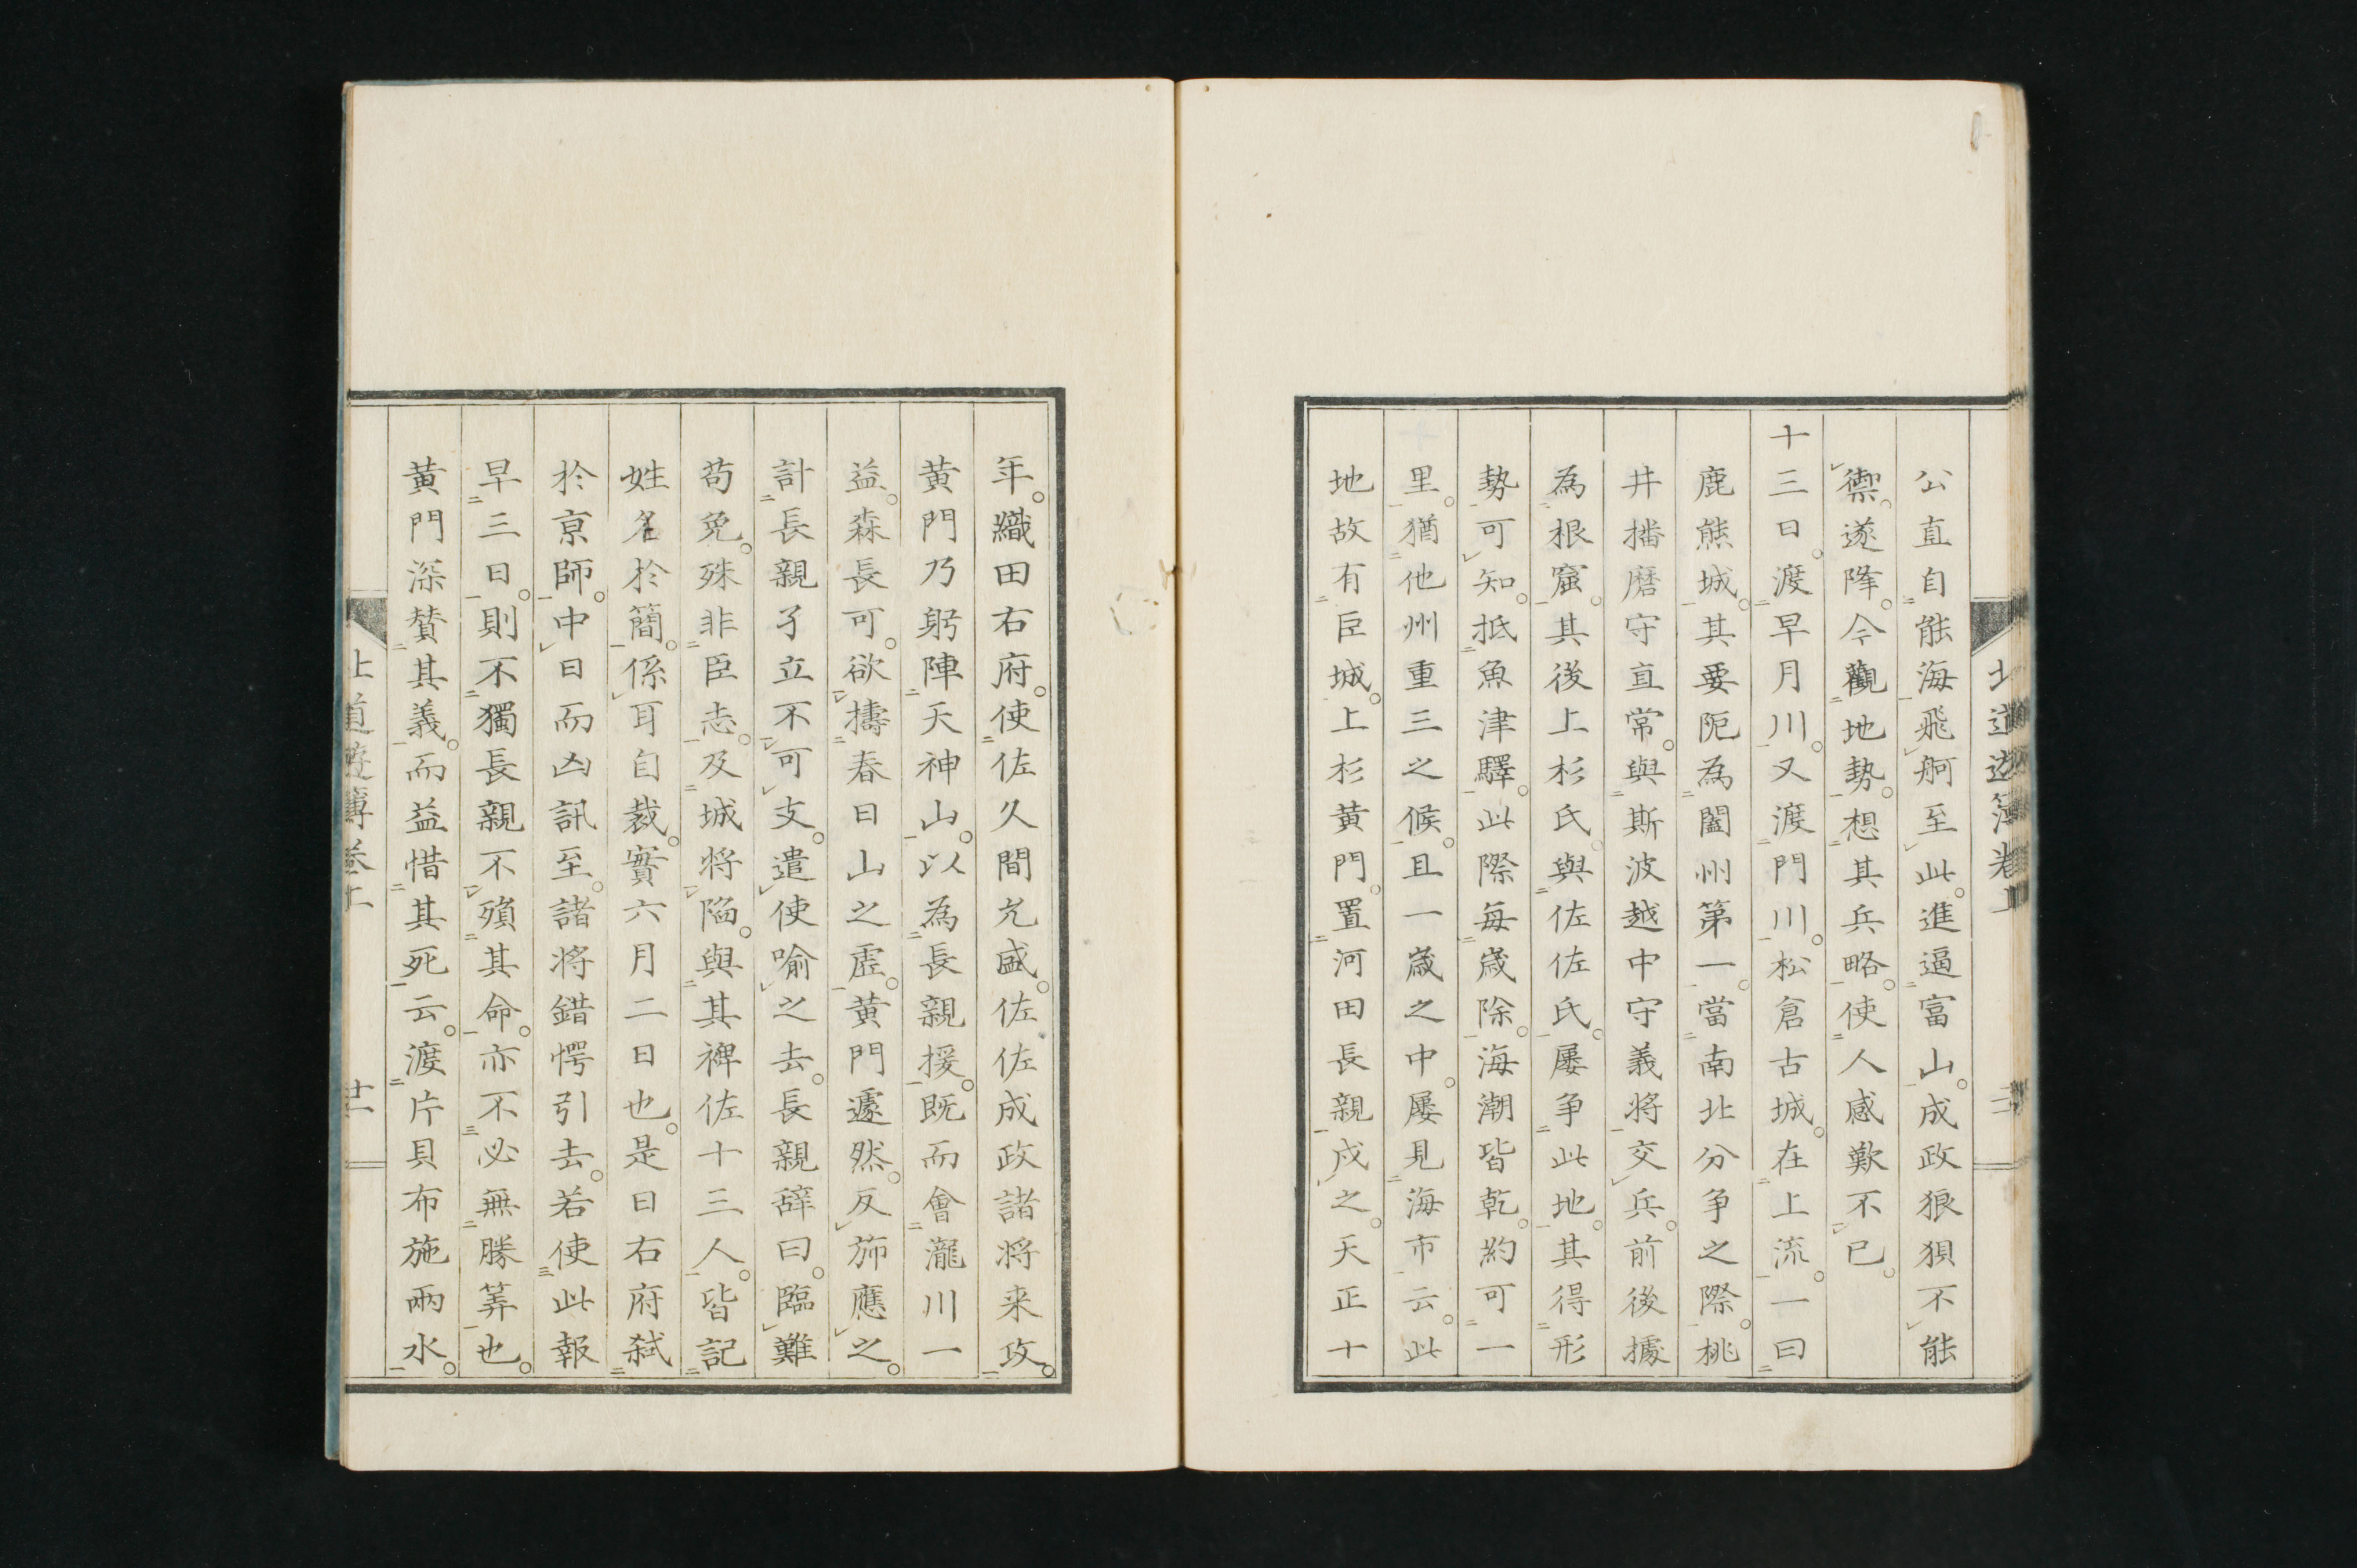 公直自能海飛舸至此。進逼富山。成政狼狽不能
禦。遂降。今觀地勢。想其兵略。使人感歎不已。
十三日。渡早月川。又渡門川。松倉古城。在上流。一曰
鹿熊城。其要阨為闔州第一。當南北分爭之際。桃
井播磨守直常。與斯波越中守義将交兵。前後據
為根窟。其後上杉氏與佐佐氏。屢争此地。其得形
勢可知。抵魚津驛。此際每歲除。海潮皆乾。約可一
里。猶他州重三之候。且一歲之中。屢見海市云。此
地故有巨城。上杉黄門。置河田長親戍之。天正十
年。織田右府。使佐久間允盛。佐佐成政諸将来攻。
黄門乃躬陣天神山。以為長親援。既而會瀧川一
益。森長可。欲擣春日山之虛。黄門遽然。反斾應之。
計長親孑立不可支。遣使喻之去。長親辭曰。臨難
苟免。殊非臣志。及城将陷。與其裨佐十三人。皆記
姓名於簡。係耳自裁。實六月二日也。是日右府弑
於京師。中日而凶訊至。諸将錯愕引去。若使此報
早三日。則不獨長親不殞其命。亦不必無勝筭也。
黄門深賛其義。而益惜其死云。渡片貝布施兩水。
北道遊簿卷上
十一